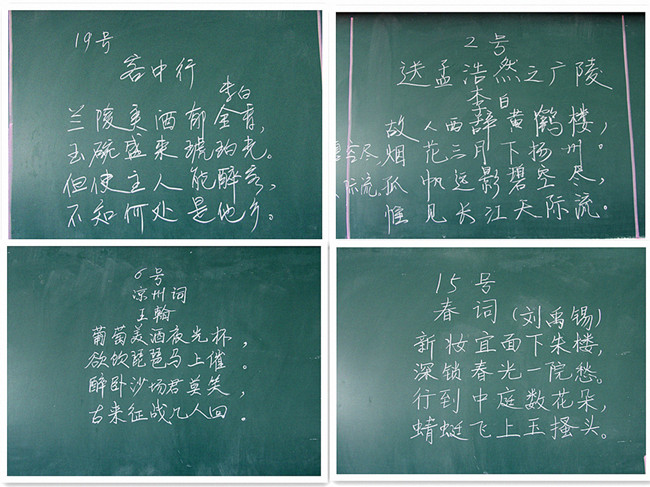 19号
客中行
李白
兰陵美酒郁金香,
玉碗盛来琥珀光。
但使主人能醉客,
不知何处是他乡。
2号
送孟浩然之广陵
李白
故人西辞黄鹤楼,
烟花三月下扬州。
孤帆远影碧空尽,
惟见长江天际流。
碧空尽
际流
6号
凉州词
王翰
葡萄美酒夜光杯,
欲饮琵琶马上催。
醉卧沙场君莫笑,
古来征战几人回。
15号
春词(刘禹锡)
新妆宜面下朱楼,
深锁春光一院愁。
行到中庭数花朵,
蜻蜓飞上玉搔头。